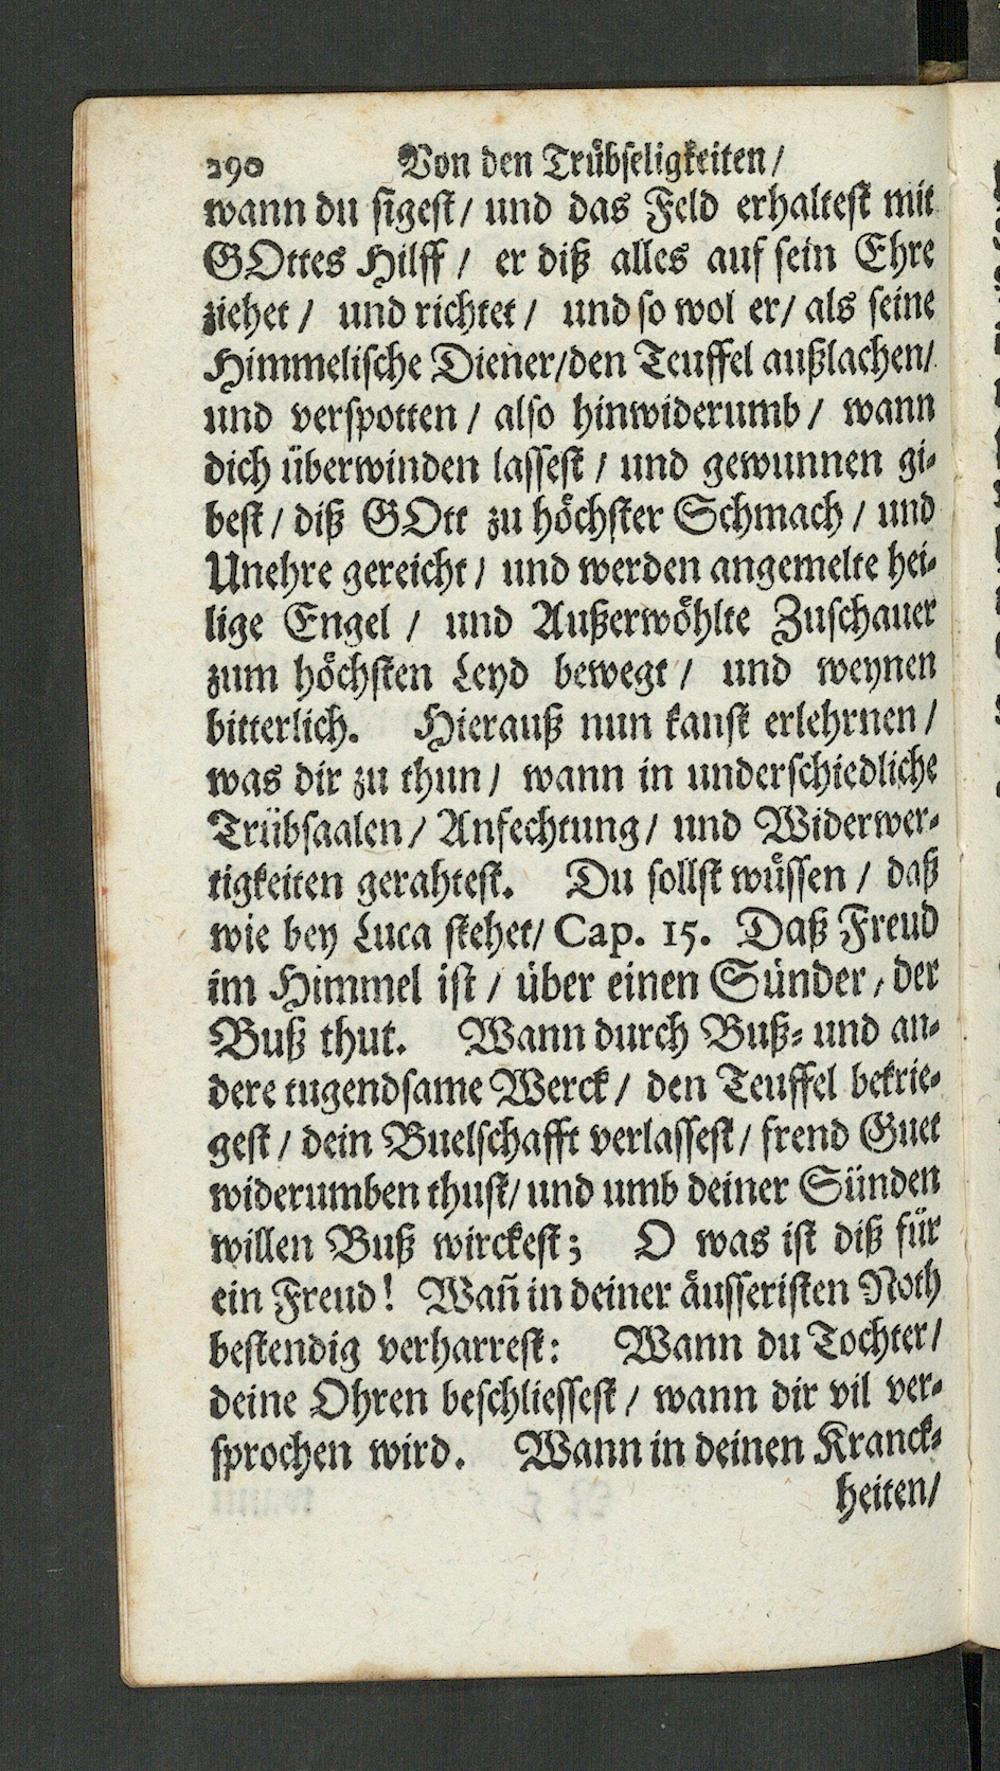 290 Von den Trübseligkeiten/
wann du sigest/ und das Feld erhaltest mit
GOttes Hilff / er diß alles auf sein Ehre
ziehet / und richtet / und so wol er/ als seine
Himmelische Diener/den Teuffel außlachen/
und verspotten / also hinwiderumb / wann
dich überwinden lassest / und gewunnen gi-
best / diß GOtt zu höchster Schmach / und
Unehre gereicht / und werden angemelte hei-
lige Engel / und Außerwöhlte Zuschauer
zum höchsten Leyd bewegt / und weynen
bitterlich. Hierauß nun kanst erlehrnen /
was dir zu thun / wann in underschiedliche
Trübsaalen / Anfechtung / und Widerwer-
tigkeiten gerahtest. Du sollst wüssen / daß
wie bey Luca stehet/ Cap. 15. Daß Freud
im Himmel ist / über einen Sünder / der
Buß thut. Wann durch Buß- und an-
dere tugendsame Werck / den Teuffel bekrie-
gest / dein Buelschafft verlassest / frend Guet
widerumben thust/ und umb deiner Sünden
willen Buß wirckest; O was ist diß für
ein Freud! Wañ in deiner äusseristen Noth
bestendig verharrest: Wann du Tochter/
deine Ohren beschliessest / wann dir vil ver-
sprochen wird. Wann in deinen Kranck-
heiten/